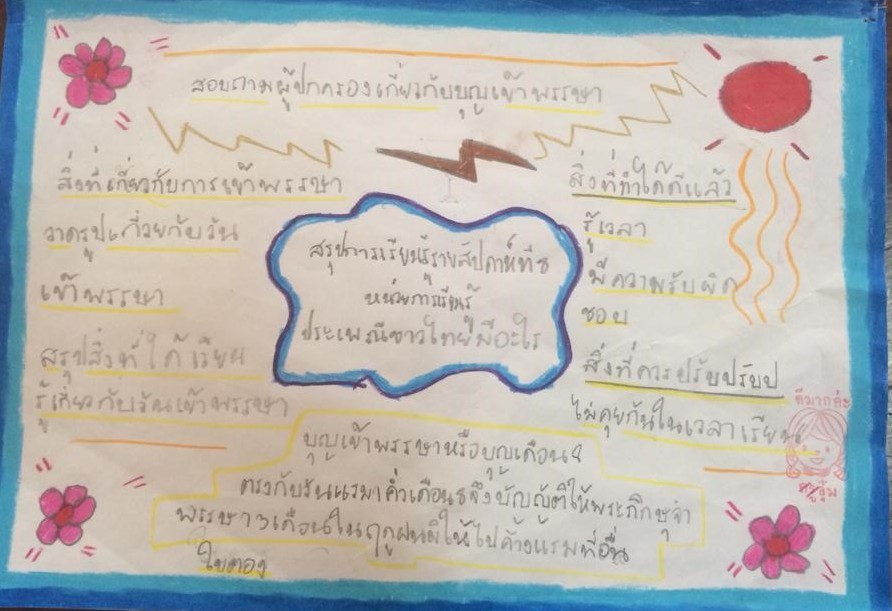 สอบถามผู้ปกครองเกี่ยวกับบุญเข้าพรรษา
สิ่งที่เกี่ยวกับการเข้าพรรษา
วาดรูปเกี่ยวกับวัน
เข้าพรรษา
สรุปสิ่งที่ได้เรียน
รู้เกี่ยวกับวันเข้าพรรษา
สรุปการเรียนรู้รายสัปดาห์ที่ 5
หน่วยการเรียนรู้
ประเพณีชาวไทยมีอะไร
สิ่งที่ทำได้ดีแล้ว
รู้เวลา
มีความรับผิด
ชอบ
สิ่งที่ควรปรับปรับป
ไม่คุยกันในเวลาเรียน
ดีมากค่ะ
ครูอุ๋ม
บุญเข้าพรรษาหรือบุญเดือน8
ตรงกับวันแรมา ค่ำเดือน8จึงบัญญัติให้พระภิกษุจำ
พรรษา3เดือนในฤดูฝนมิให้ไปค้างแรมที่อื่น
ใบตอง